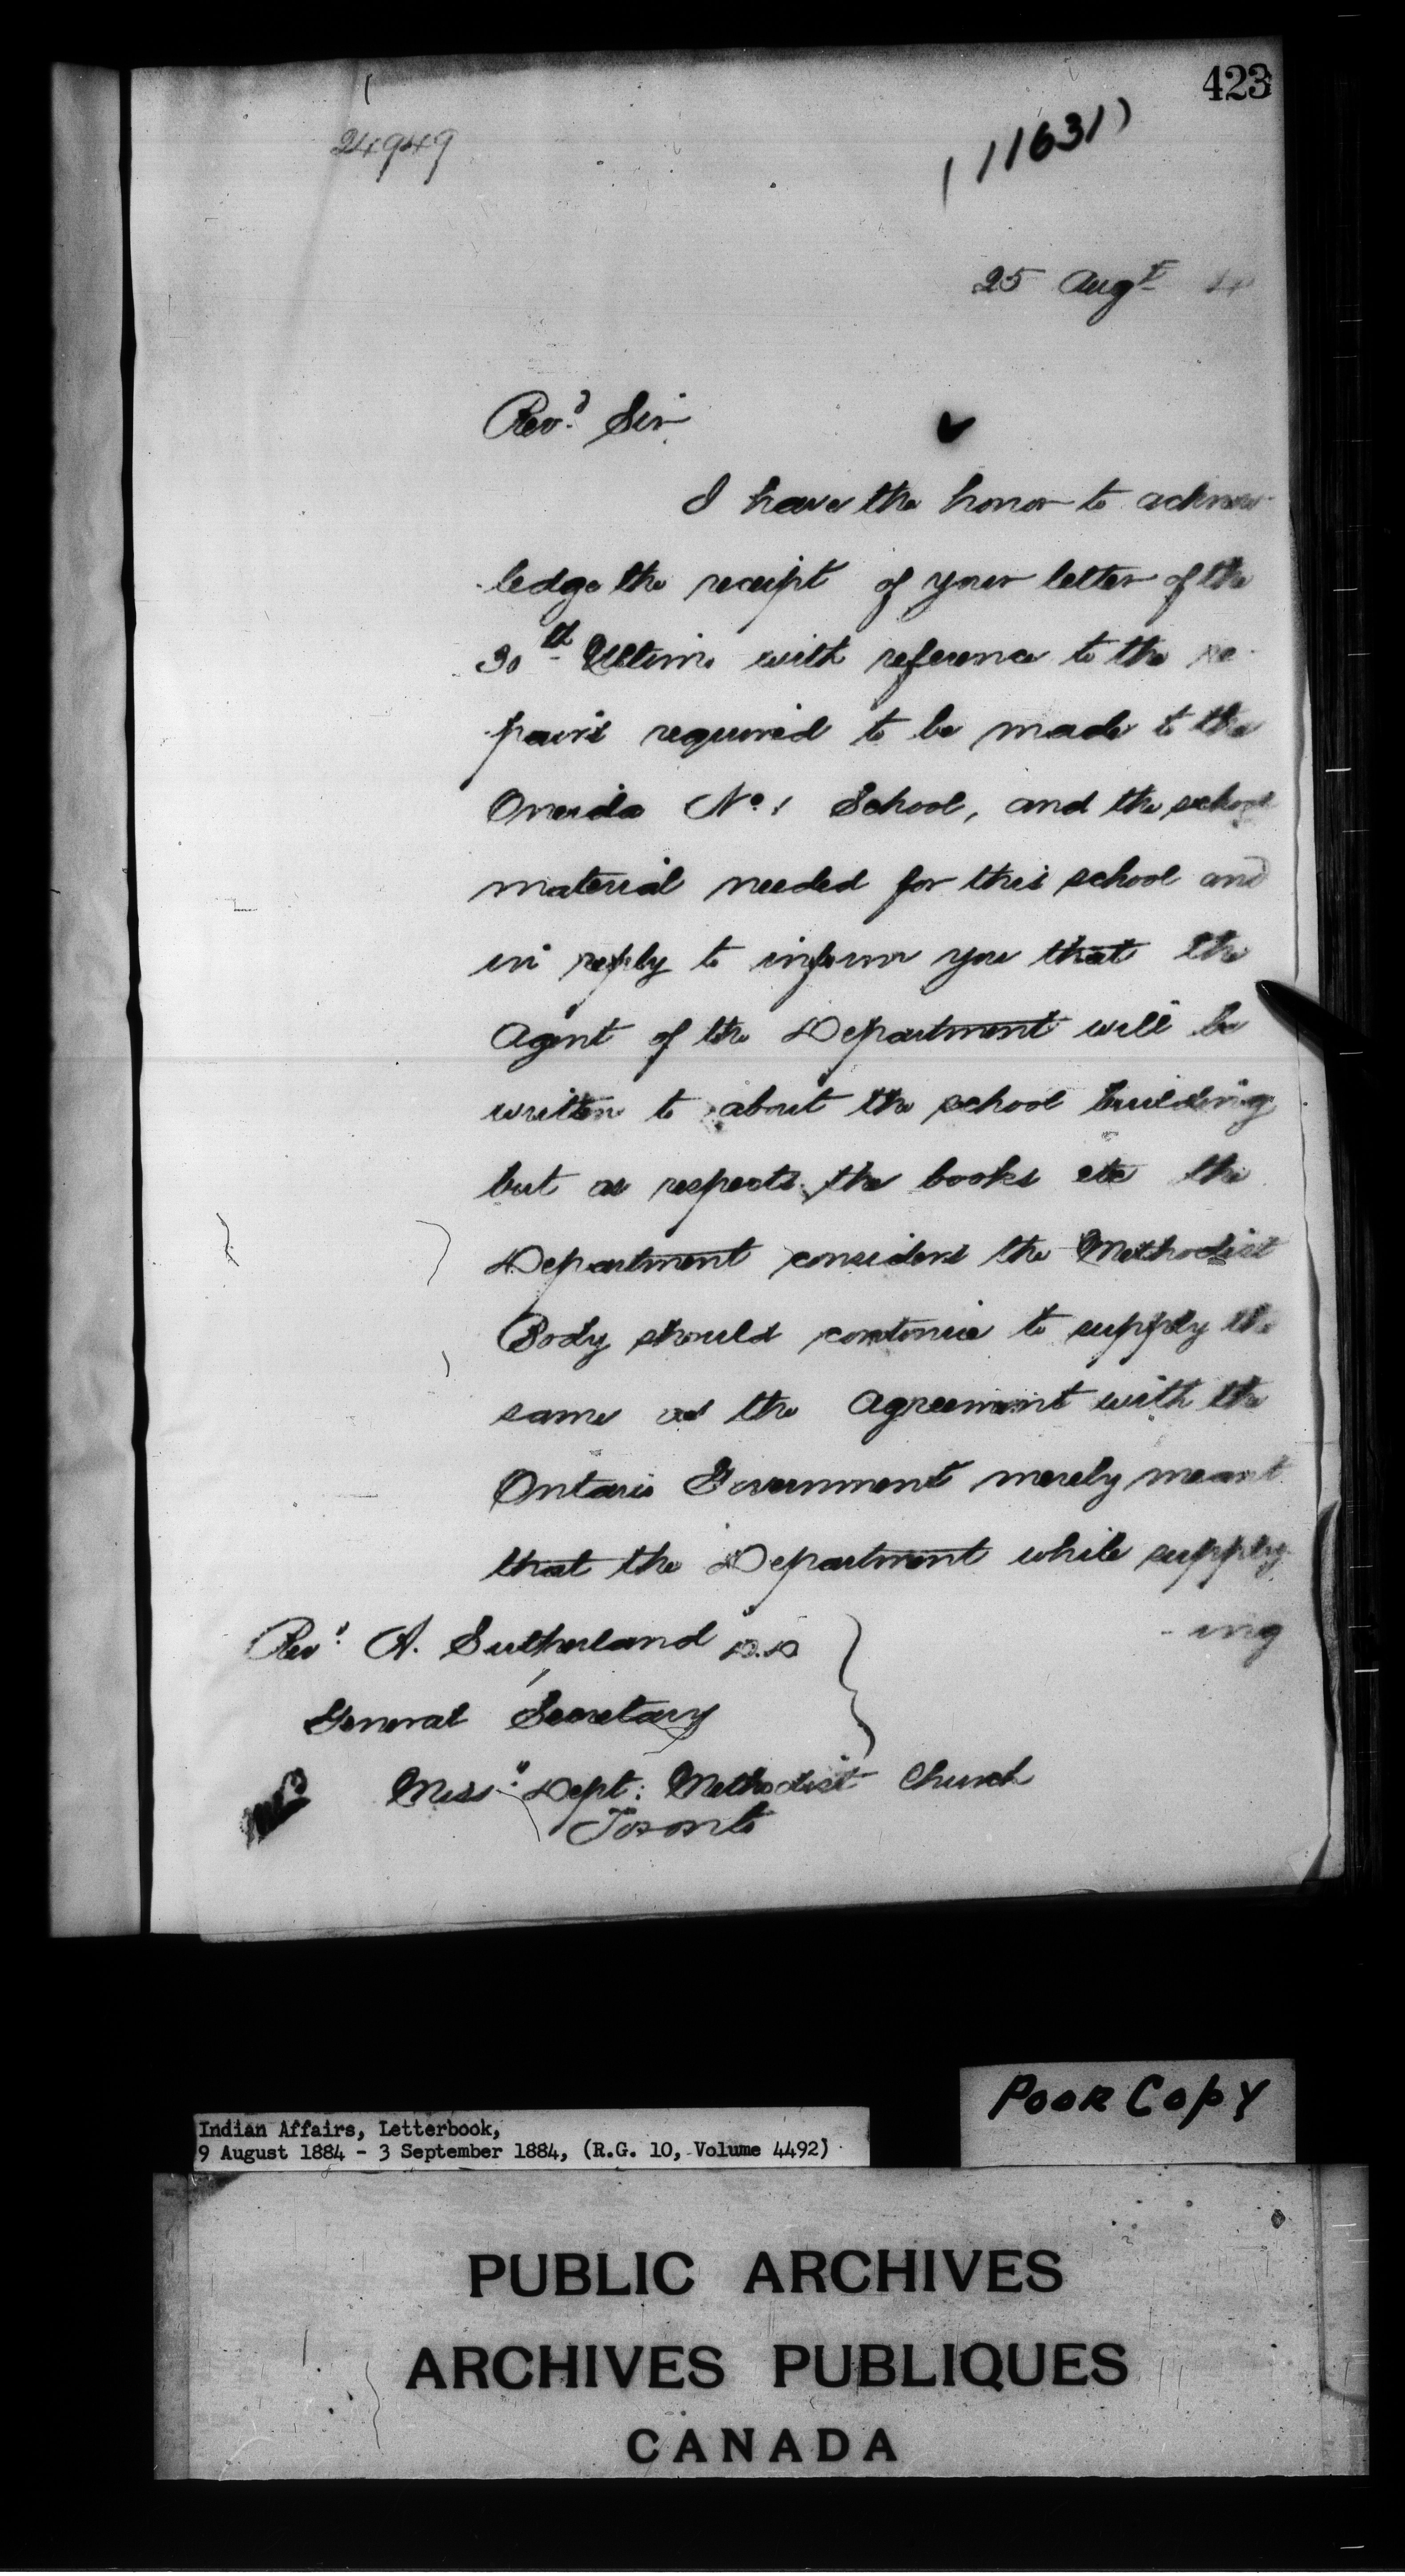 423
24949
(11631)
25 Augt
Revd. Sir
I have the honor to acknow-
ledge the receipt of your letter of the
30th Ultimo with reference to the re-
pairs required to be made to the
Oneida No. 1 School, and the school
material needed for this school and
in reply to inform you that the
Agent of the Department will be
written to about the school building
but as respects the books etc the
Department considers the Methodist
Body should continue to supply the
same as the Agreement with the
Ontario Government merely meant
that the Department while supply-
-ing
Revd. A. Sutherland D.D
General Secretary
Missy. Dept: Methodist Church
Toronto
Poor Copy
Indian Affairs, Letterbook,
9 August 1884 - 3 September 1884, (R.G. 10, Volume 4492)
PUBLIC ARCHIVES
ARCHIVES PUBLIQUES
CANADA